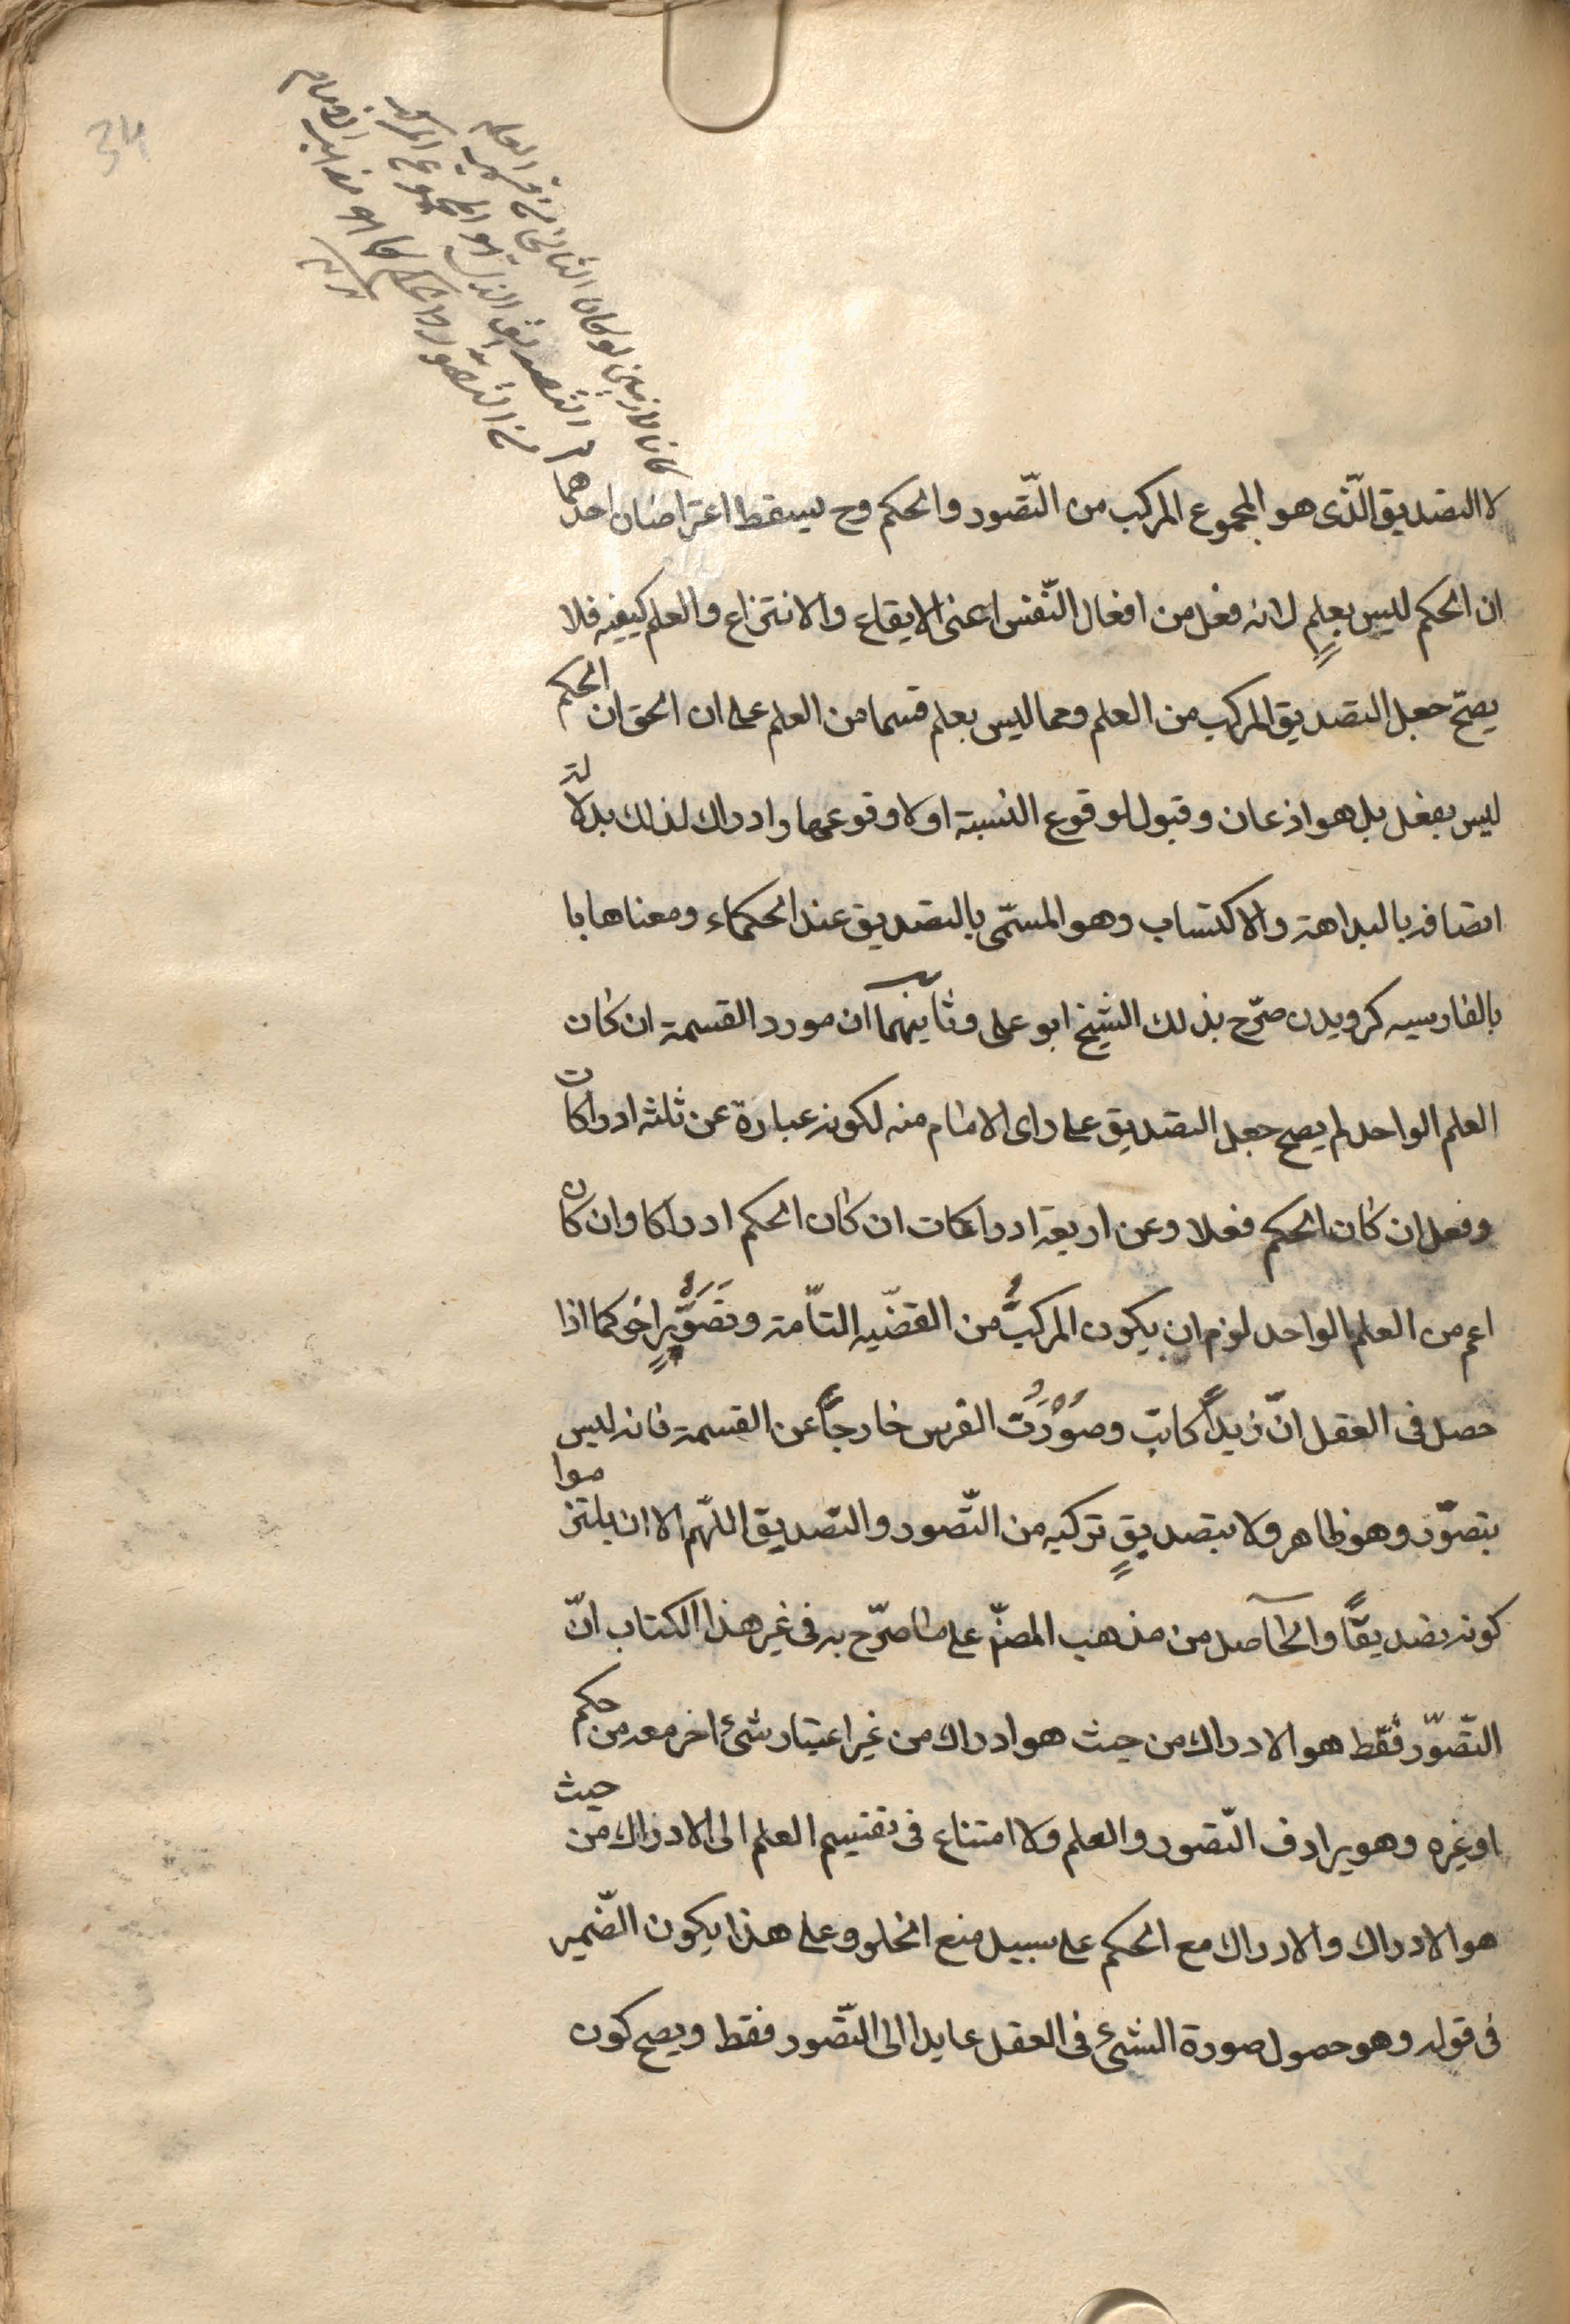 34
كانا لازمين لو كان الثاني من قسمي العلم
التصديق الذي هو المجموع المركب
من التصور والحكم كما هو مذهب الامام
لا التصديق الّذى هو المجموع المركب من التّصور والحكم وح يسقط اعتراضان احدهما
ان الحكم ليس بعلمٍ لانه فعل من افعال النّفس اعنى الايقاع والانتزاع والعلم كيفيه فلا
يصحّ جعل التصديق المركب من العلم ومما ليس بعلم قسما من العلم على ان الحق ان الحكم
ليس بفعل بل هو اذعان وقبول لوقوع النسبة اولا وقوعها وادراك لذلك بدلالة
اتصافه بالبداهة والاكتساب وهو المسمّى بالتصديق عند الحكماء ومعناها با
بالفارسيه كرويدن صرّح بذلك الشيخ ابو على وثانيهما ان مورد القسمة ان كان
العلم الواحد لم يصح جعل التصديق على راى الامام منه لكونه عبارة عن ثلثه ادراكات
وفعل ان كان الحكم فعلا وعن اربعة ادراكات ان كان الحكم ادراكا وان كان
اعم من العلم الواحد لزم ان يكون المركبُ من القضّيه التاّمة وتَصَوُّرٍ اخر كما اذا
حصل فى العقل انّ زيداً كاتب وصُوْرَتُ الفرس خارجاً عن القسمة فانه ليس
بتصوّر وهو ظاهر ولا بتصديقٍ تركبه من التّصور والتّصديق اللّهم الا ان يلتزموا
كونه تصديقًا والحآصل من مذهب المصنّ على ما صرّح به فى غير هذا الكتاب انّ
التّصوّر فقط هو الادراك من حيث هو ادراك من غير اعتبار شئ اخر معه من حكم
او غيره وهو يرادف التّصور والعلم ولا امتناع فى تقسيم العلم الى الادراك من حيث
هو الادراك والادراك مع الحكم على سبيل منع الخلو وعلى هذا يكون الضّمير
فى قوله وهو حصول صورة الشئ فى العقل عايدا الى التّصور فقط ويصح كون